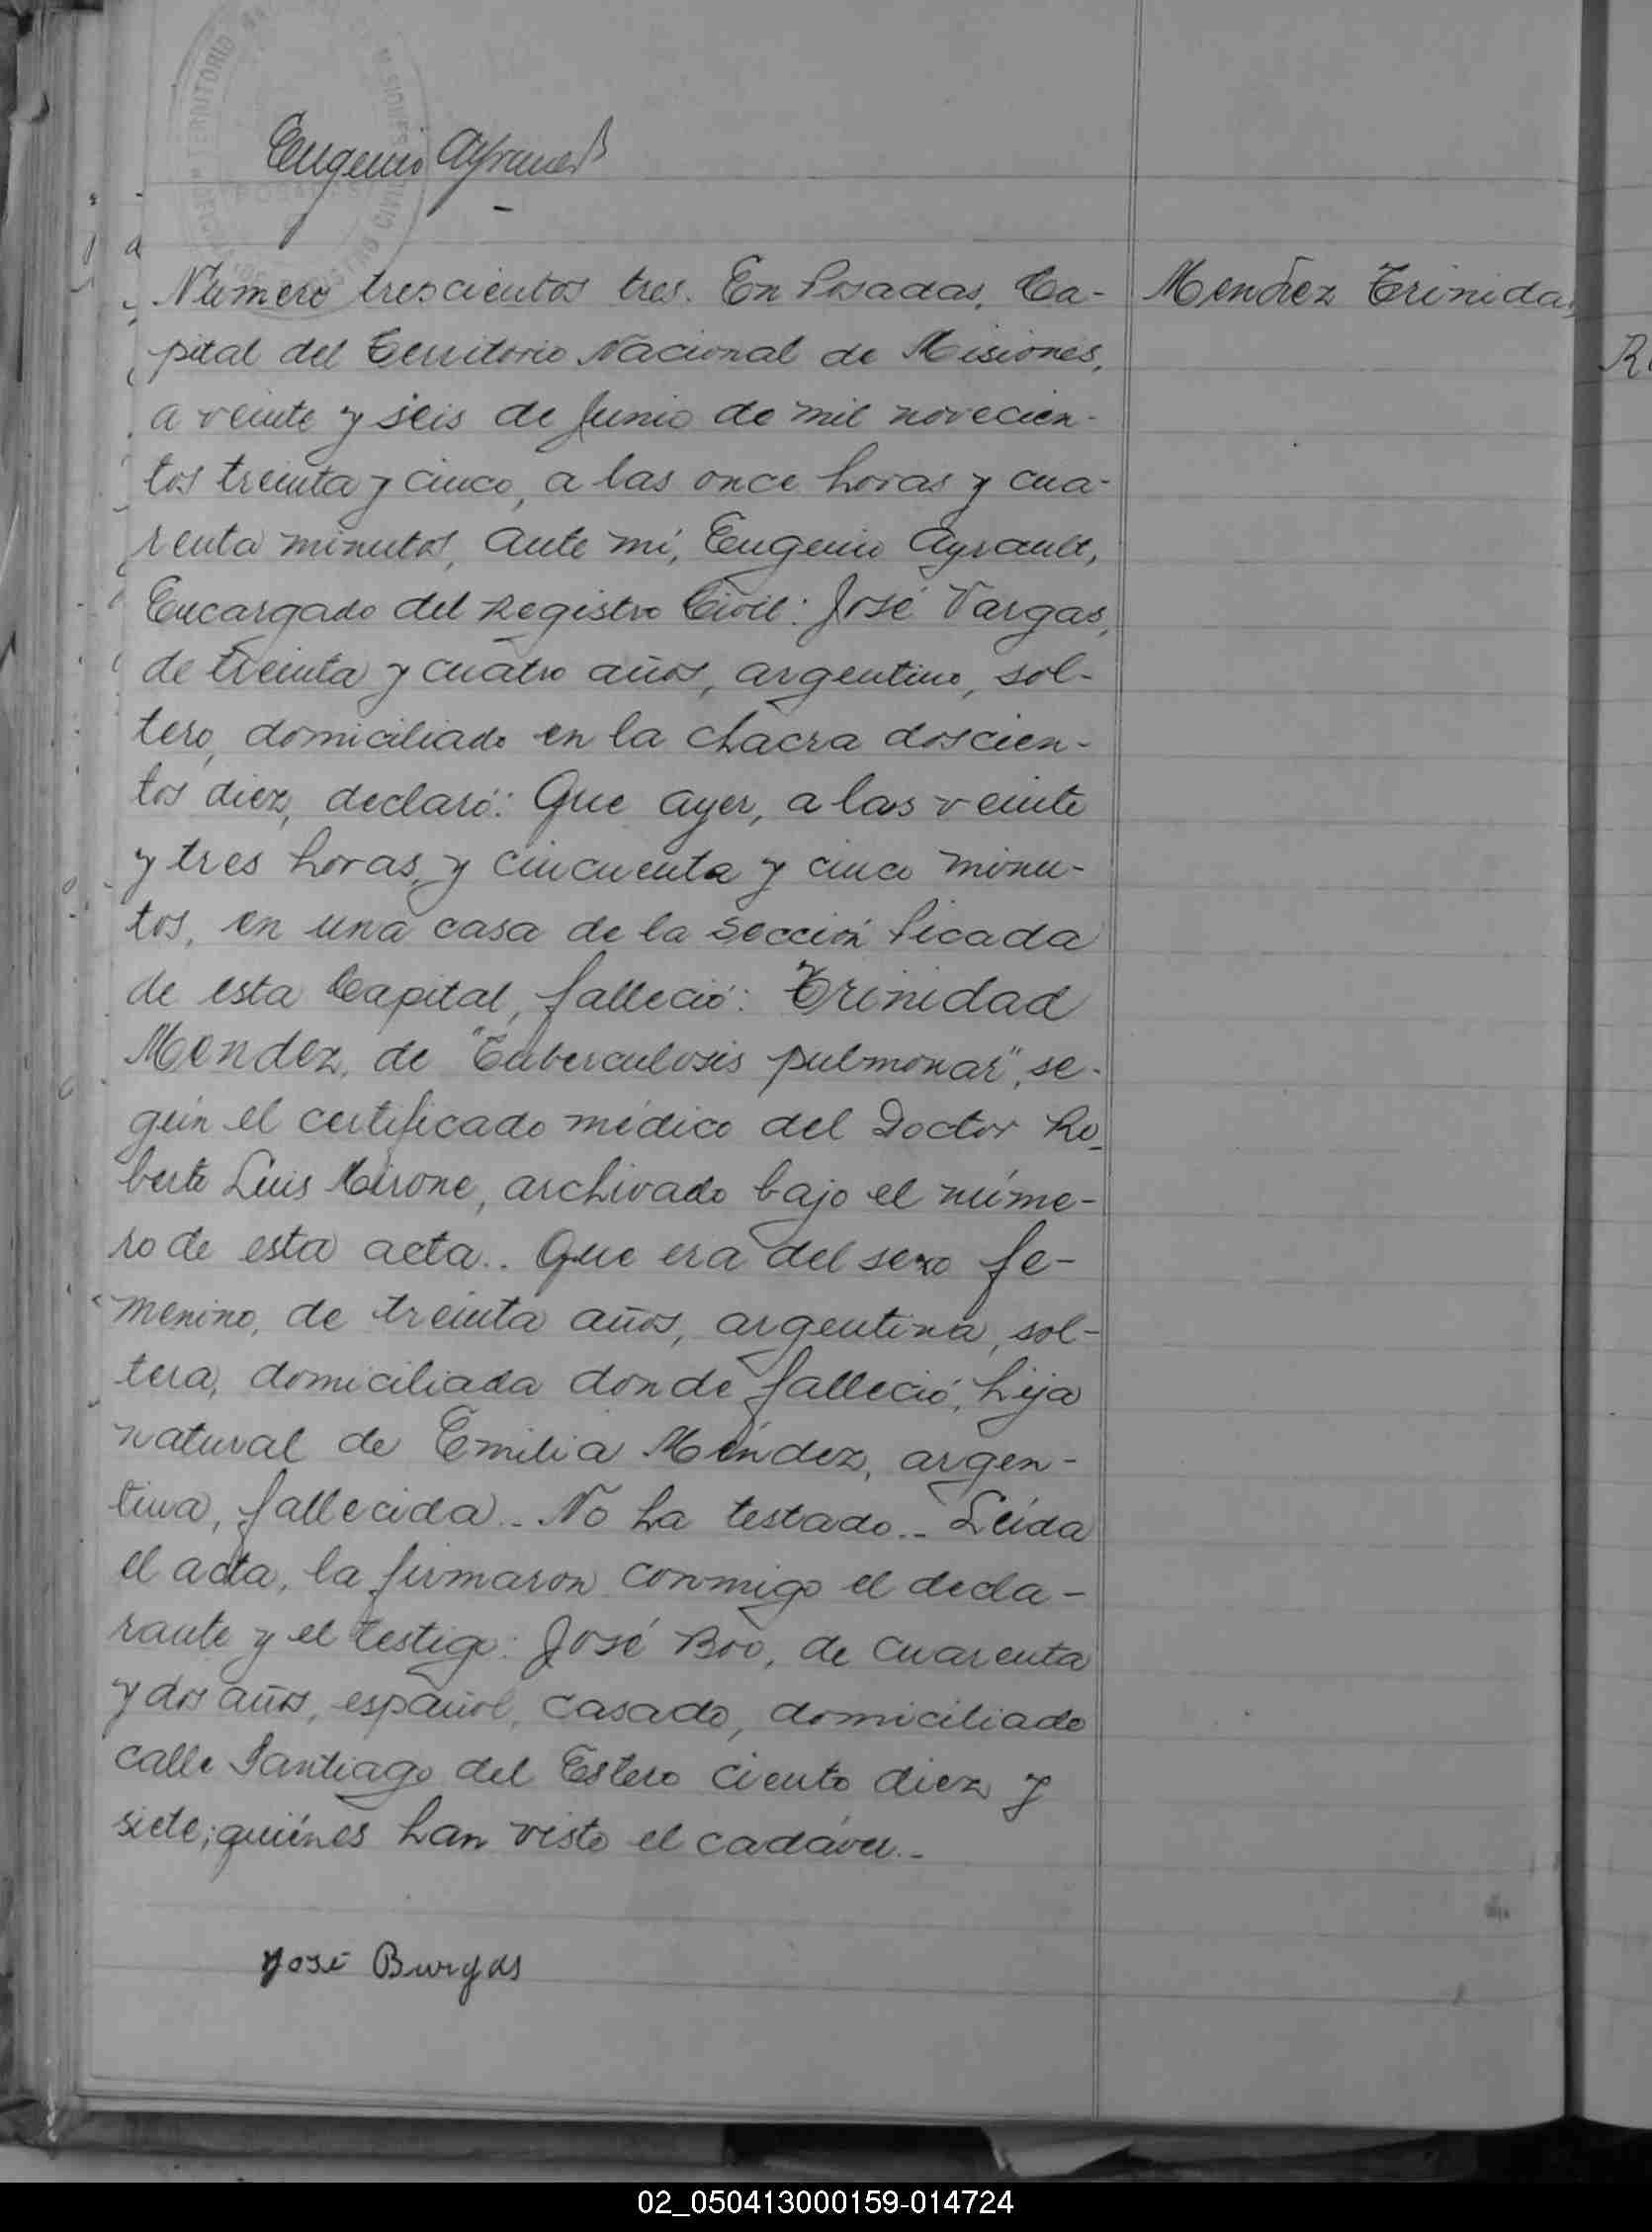 TERRITORIO
MISIONES
REGISTRO CIVIL
Eugenio Ayrault
Número trescientos tres. En Posadas, Ca-
pital del Territorio Nacional de Misiones,
a veinte y seis de Junio de mil novecien-
tos treinta y cinco, a las once horas y cua-
renta minutos, ante mí, Eugenio Ayrault,
Encargado del Registro Civil: José Vargas,
de treinta y cuatro años, argentino, sol-
tero, domiciliado en la chacra doscien-
tos diez, declaró: Que ayer, a las veinte
y tres horas y cincuenta y cinco minu-
tos, en una casa de la Sección Picada
de esta Capital, falleció: Trinidad
Mendez, de "Tuberculosis pulmonar", se-
gún el certificado médico del Doctor Ro-
berto Luis Mirone, archivado bajo el núme-
ro de esta acta.. Que era del sexo fe-
menino, de treinta años, argentina, sol-
tera, domiciliada donde falleció, hija
natural de Emilia Méndez, argen-
tina, fallecida.- No ha testado.- Leída
el acta, la firmaron conmigo el decla-
rante y el testigo: José Boo, de cuarenta
y dos años, español, casado, domiciliado
calle Santiago del Estero ciento diez y
siete; quiénes han visto el cadáver.-
José Burgas
Mendez Trinidad
02_050413000159-014724